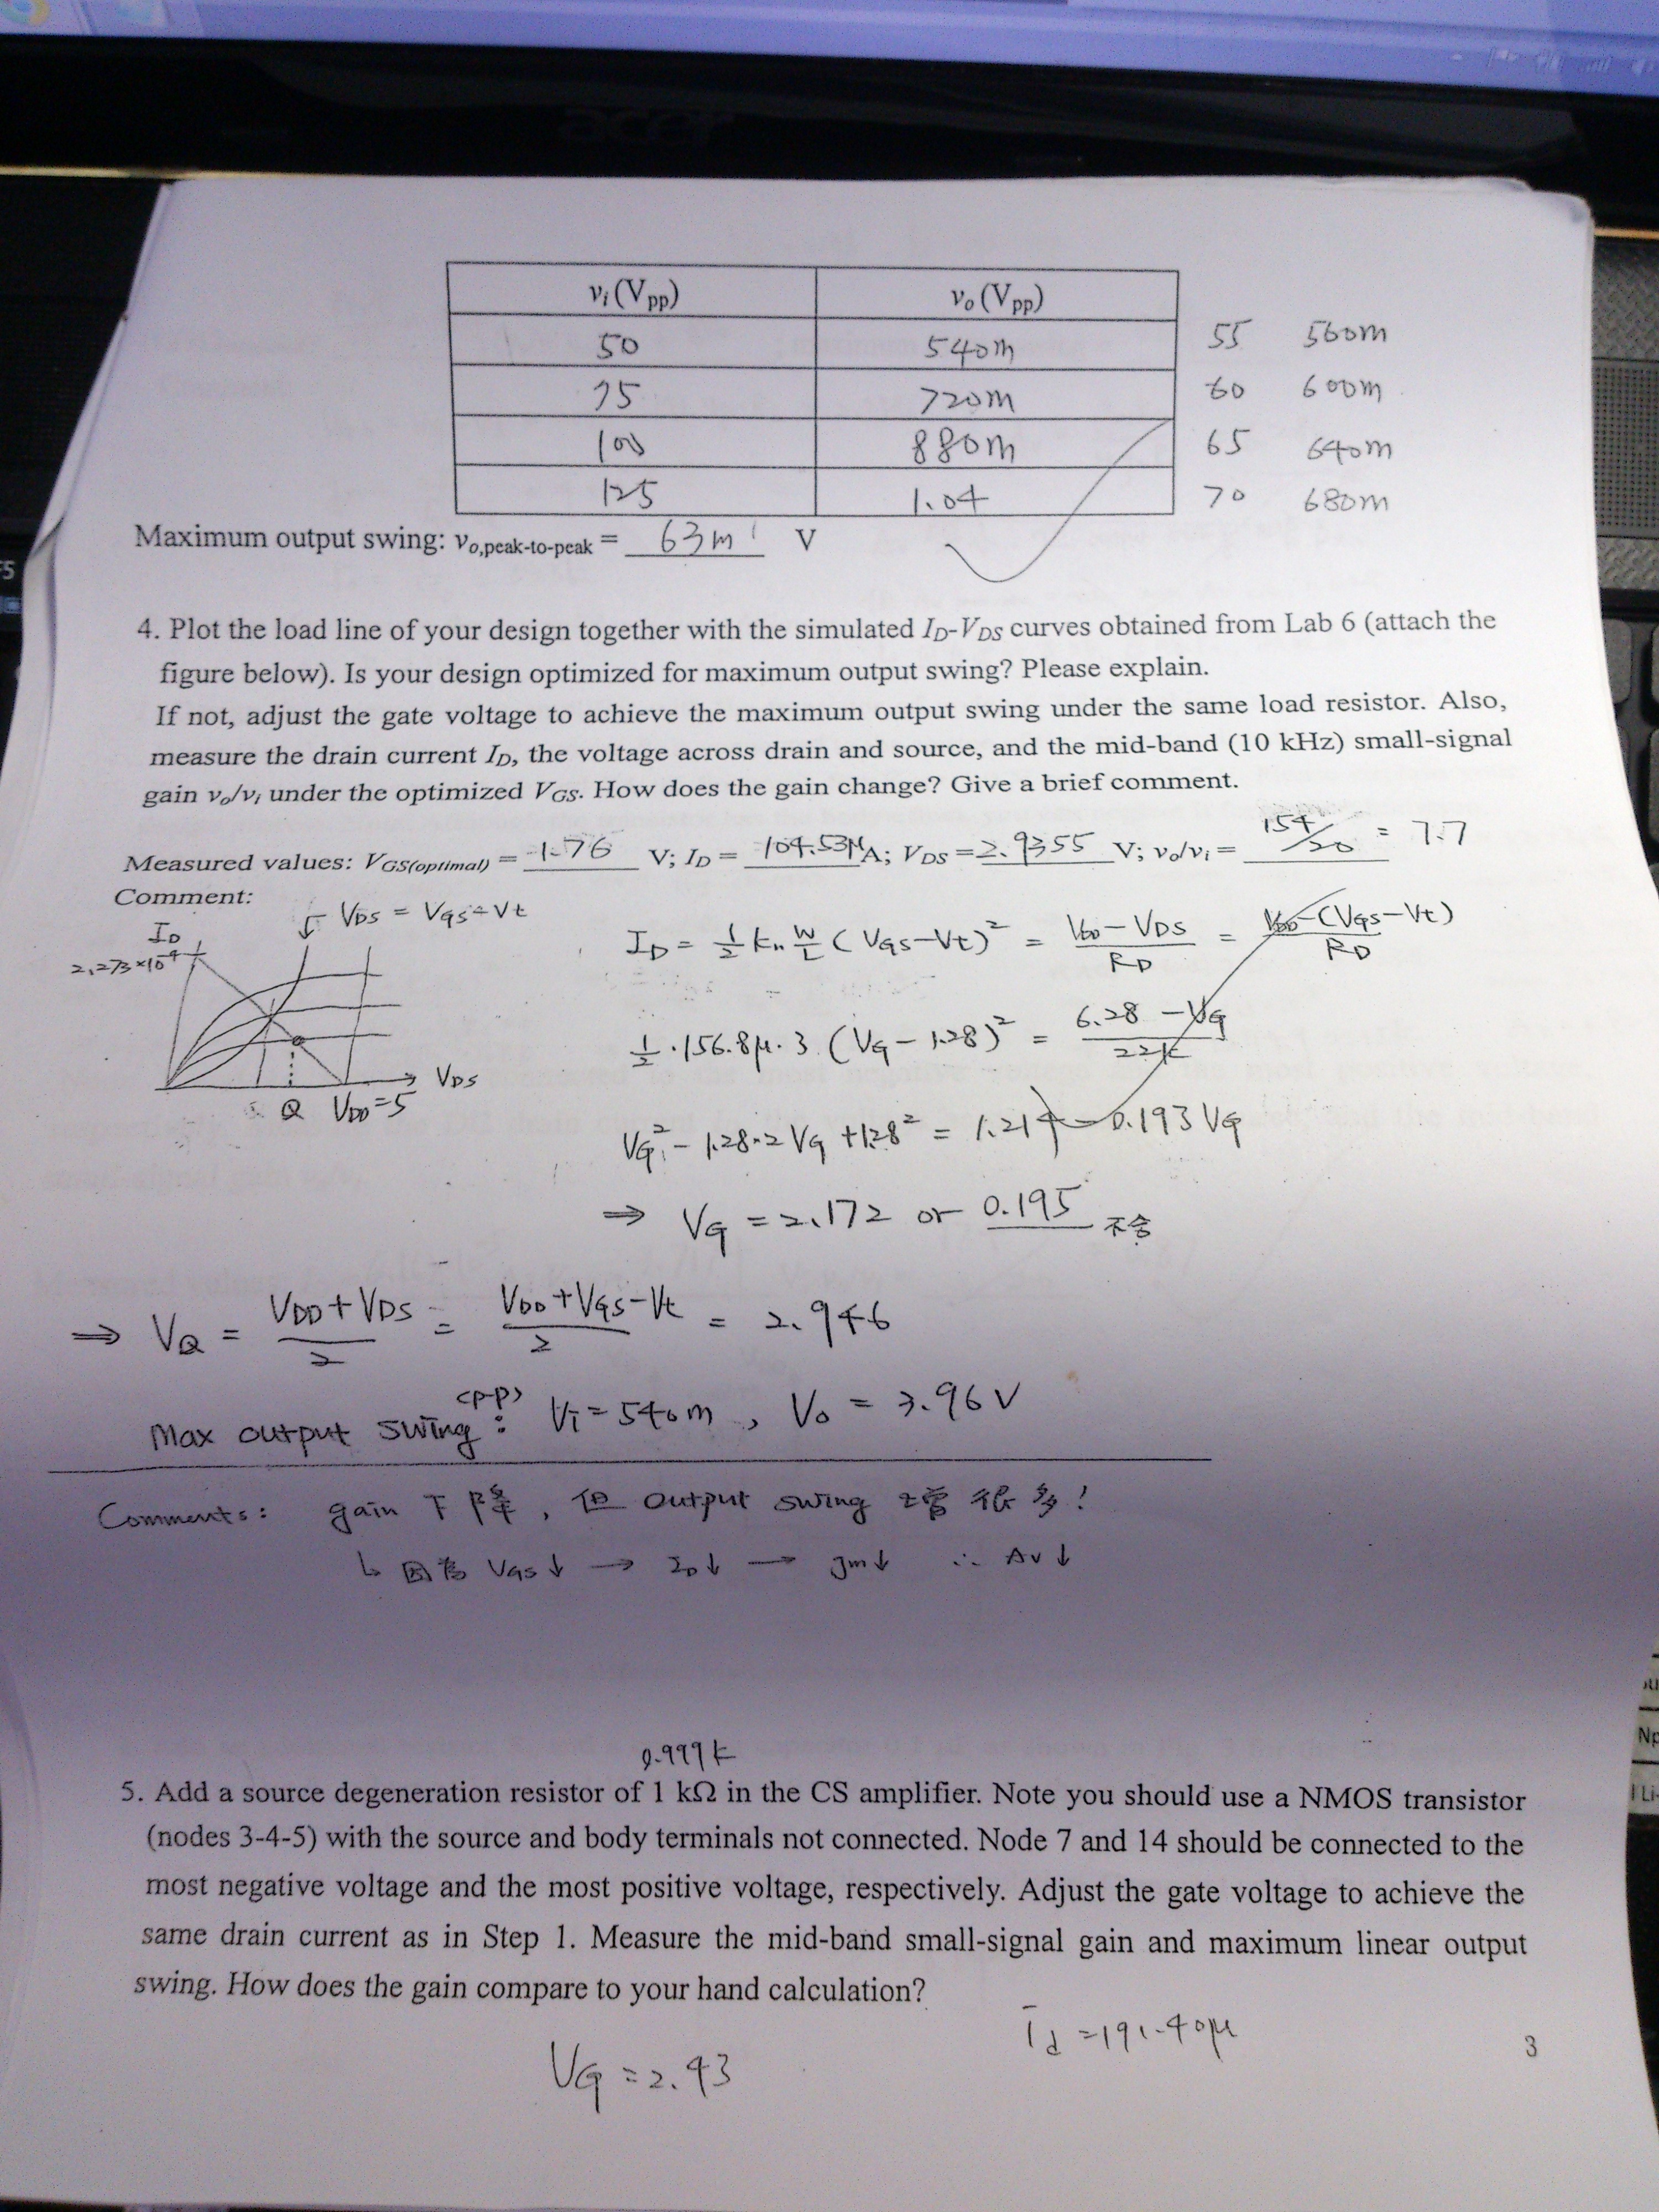 acer
F5
vi (Vpp) vo (Vpp)
50 540m 55 560m
75 720m 60 600m
100 880m 65 640m
125 1.04 70 680m
Maximum output swing: vo,peak-to-peak = 63m V
4. Plot the load line of your design together with the simulated ID-VDS curves obtained from Lab 6 (attach the
figure below). Is your design optimized for maximum output swing? Please explain.
If not, adjust the gate voltage to achieve the maximum output swing under the same load resistor. Also,
measure the drain current ID, the voltage across drain and source, and the mid-band (10 kHz) small-signal
gain vo/vi under the optimized VGS. How does the gain change? Give a brief comment.
Measured values: VGS(optimal) = 1.76 V; ID = 104.53μA; VDS = 2.9355 V; vo/vi = 154/20 = 7.7
Comment:
VDS = VGS-Vt
ID
2.273×10⁻⁴
VDS
Q VDD=5
ID = 1/2 kn W/L (VGS-Vt)² = VDD-VDS/RD = VDD-(VGS-Vt)/RD
1/2 · 156.8μ · 3 (VG - 1.28)² = 6.28 - VG/22K
VG² - 1.28·2 VG + 1.28² = 1.214 - 0.193 VG
⇒ VG = 2.172 or 0.195 不合
⇒ VQ = VDD+VDS/2 = VDD+VGS-Vt/2 = 2.946
Max output swing (p-p): Vi = 540m, Vo = 3.96V
Comments: gain 下降, 但 output swing 增 很多!
↳ 因為 VGS↓ → ID↓ → gm↓ ∴ Av↓
0.999k
5. Add a source degeneration resistor of 1 kΩ in the CS amplifier. Note you should use a NMOS transistor
(nodes 3-4-5) with the source and body terminals not connected. Node 7 and 14 should be connected to the
most negative voltage and the most positive voltage, respectively. Adjust the gate voltage to achieve the
same drain current as in Step 1. Measure the mid-band small-signal gain and maximum linear output
swing. How does the gain compare to your hand calculation?
Id = 191.40μ
VG = 2.43
3